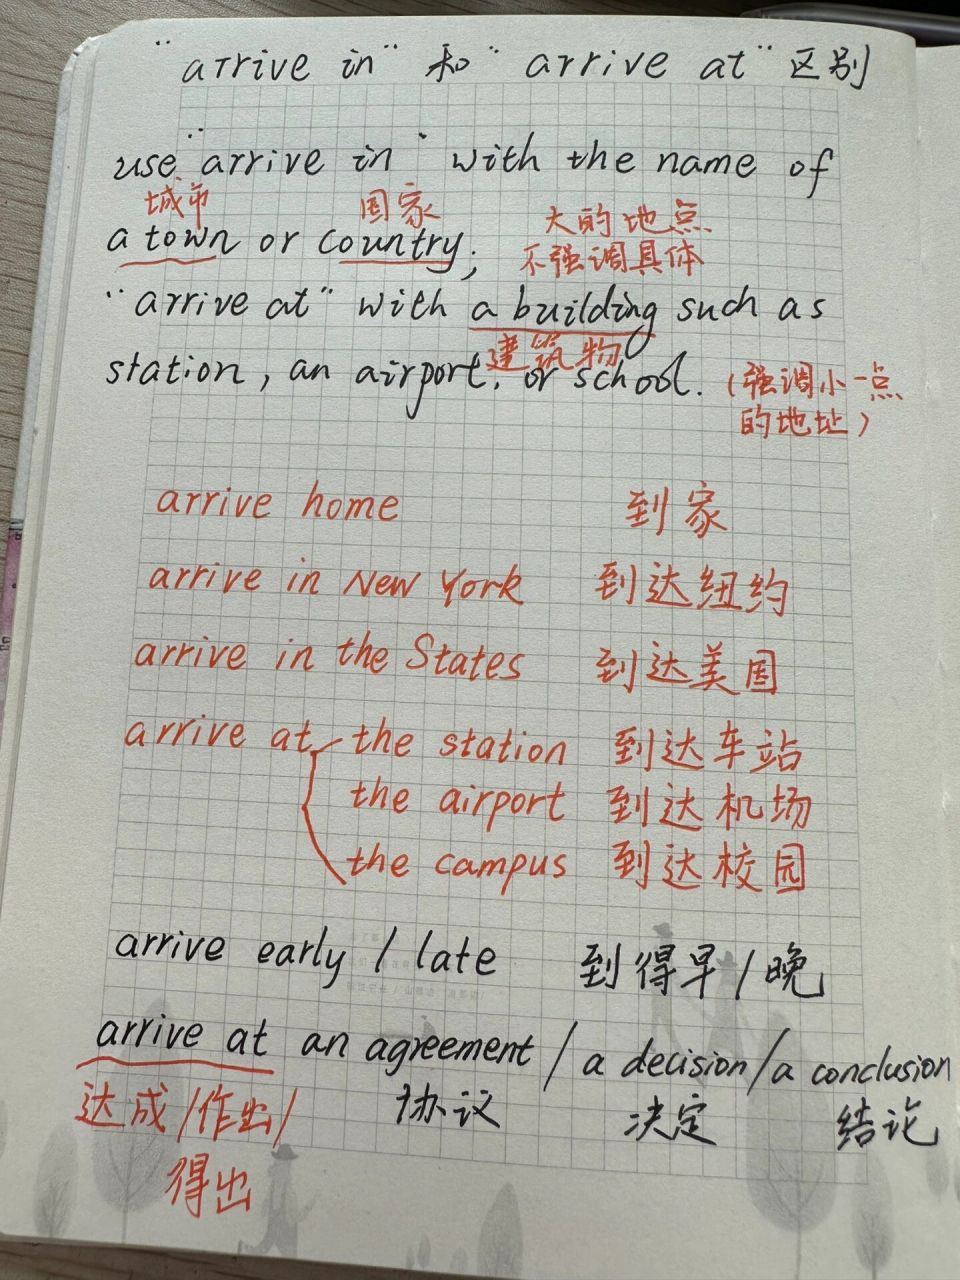 "arrive in" 和 "arrive at" 区别
use "arrive in" with the name of
城市 国家 大的地点
a town or country; 不强调具体
"arrive at" with a building such as
建筑物
station, an airport, or school. (强调小一点
的地址)
arrive home 到家
arrive in New York 到达纽约
arrive in the States 到达美国
arrive at the station 到达车站
the airport 到达机场
the campus 到达校园
arrive early / late 到得早/晚
arrive at an agreement / a decision / a conclusion
达成/作出/ 协议 决定 结论
得出